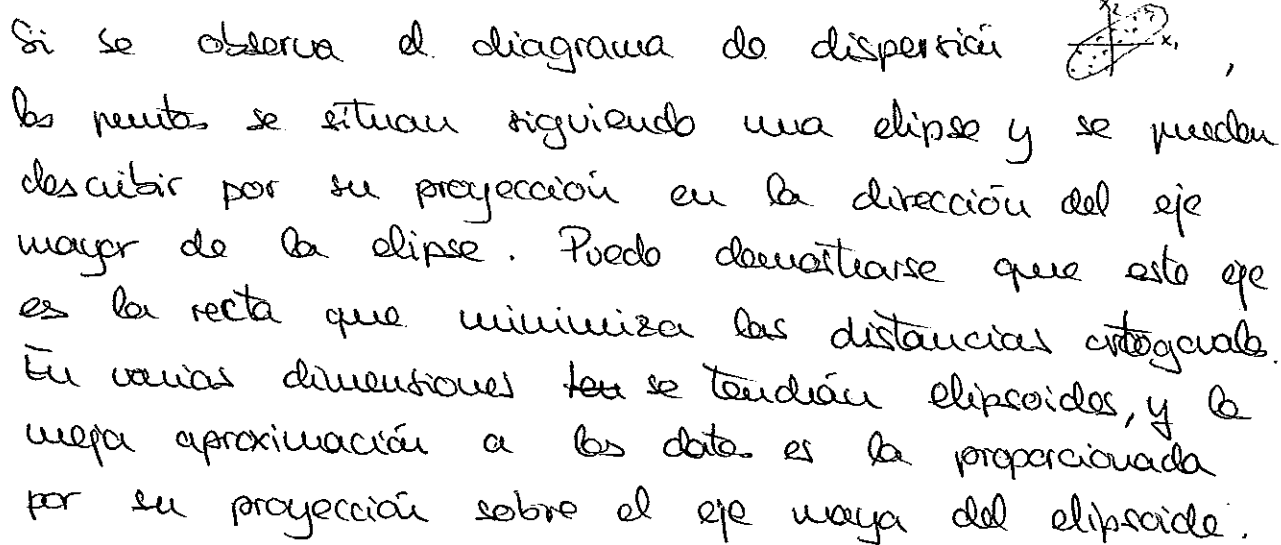 Si se observa el diagrama de dispersión x₂ x₁ ,
los puntos se situan siguiendo una elipse y se pueden
describir por su proyección en la dirección del eje
mayor de la elipse. Puede demostrarse que este eje
es la recta que minimiza las distancias ortogonales.
En varias dimensiones se tendrán elipsoides, y la
mejor aproximación a los datos es la proporcionada
por su proyección sobre el eje mayor del elipsoide.